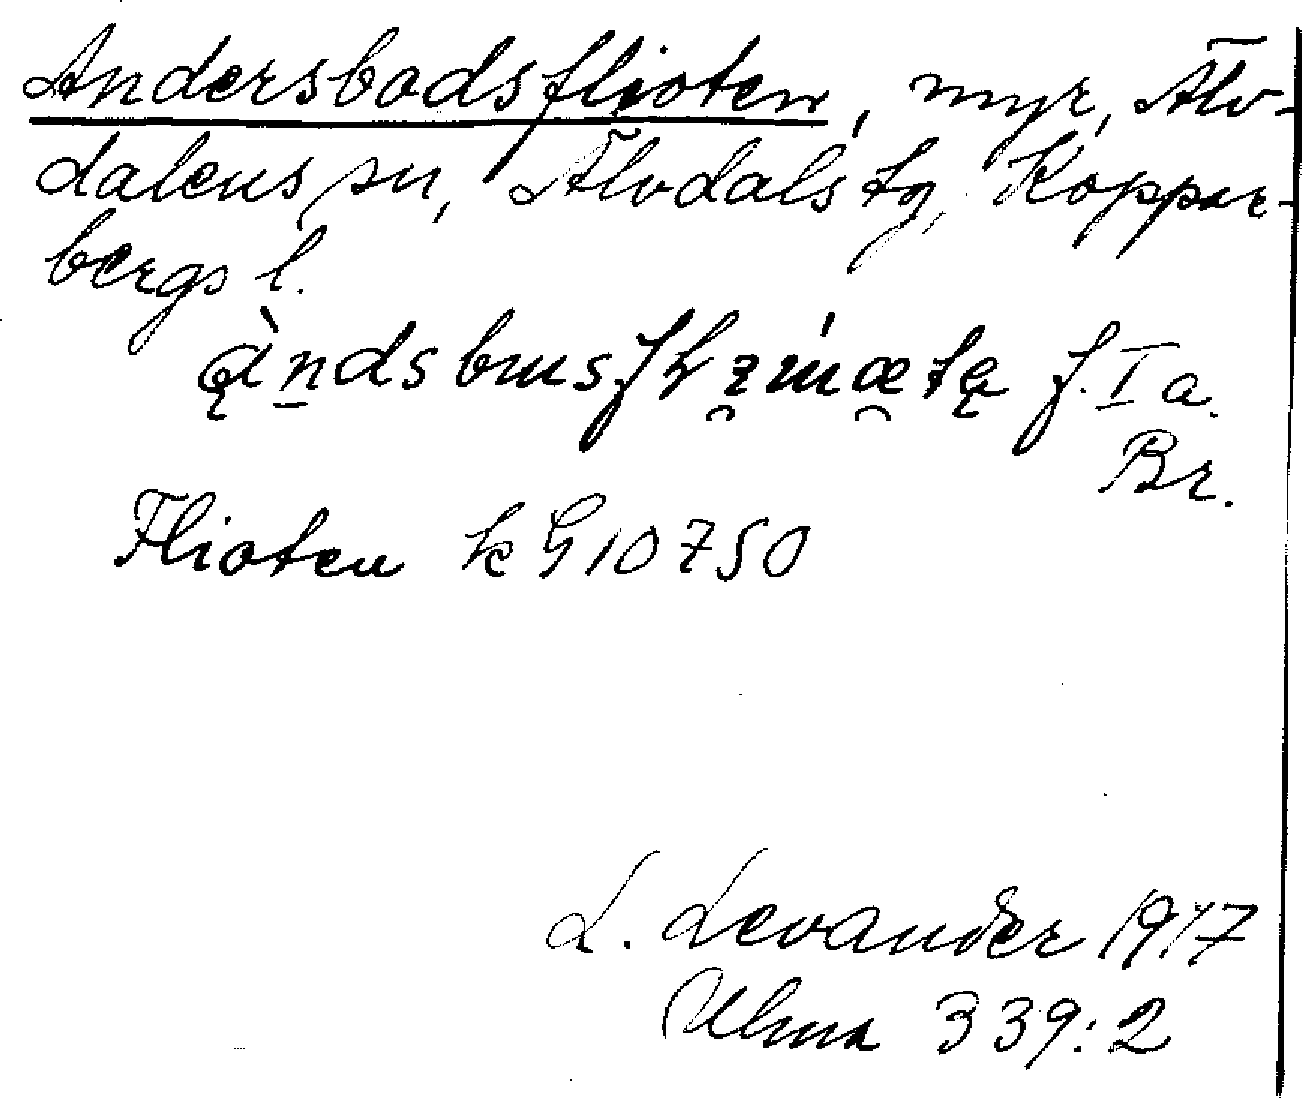 Andersbodsflioten, myr, Älv-
dalens sn, Älvdals tg, Koppar-
bergs l.
f. I a.
Br.
Flioten k G 10750
L. Levander 1917
Ulma 339:2